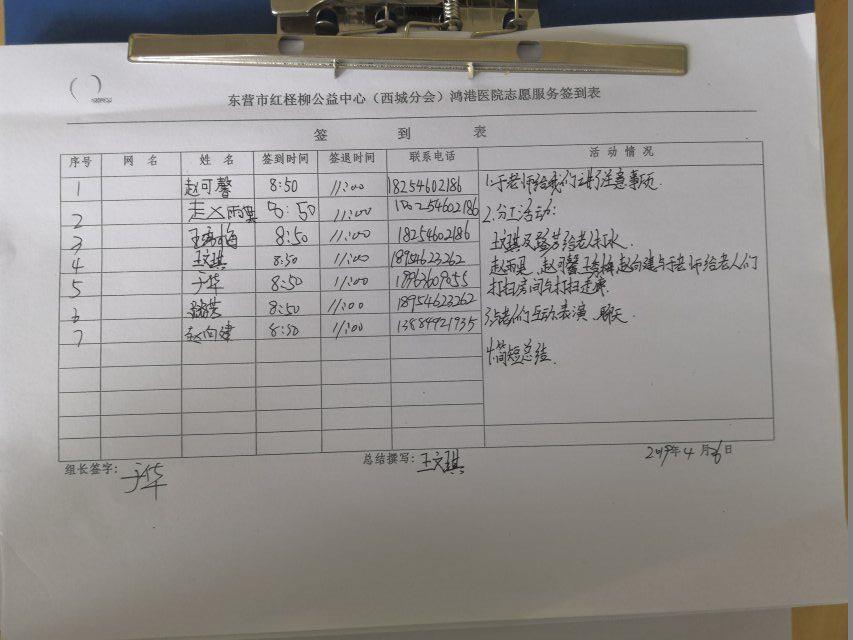 东营市红柽柳公益中心（西城分会）鸿港医院志愿服务签到表
签 到 表
序号 网 名 姓 名 签到时间 签退时间 联系电话 活 动 情 况
1 赵可馨 8:50 11:00 18254602186
2 赵雨淇 8:50 11:00 18254602186
3 8:50 11:00 18254602186
4 王文琪 8:50 11:00 18954623262
5 于华 8:50 11:00
6 8:50 11:00 18954623262
7 赵向建 8:50 11:00 13884921935
1.于老师给我们讲了注意事项.
2.分工活动:
王文琪及 给老人打水.
赵雨淇、赵可馨、 赵向建与于老师给老人们
打扫房间与打扫走廊.
3.与老人们互动、表演、聊天.
4.简短总结.
组长签字：于华
总结撰写：王文琪
2019年4月26日